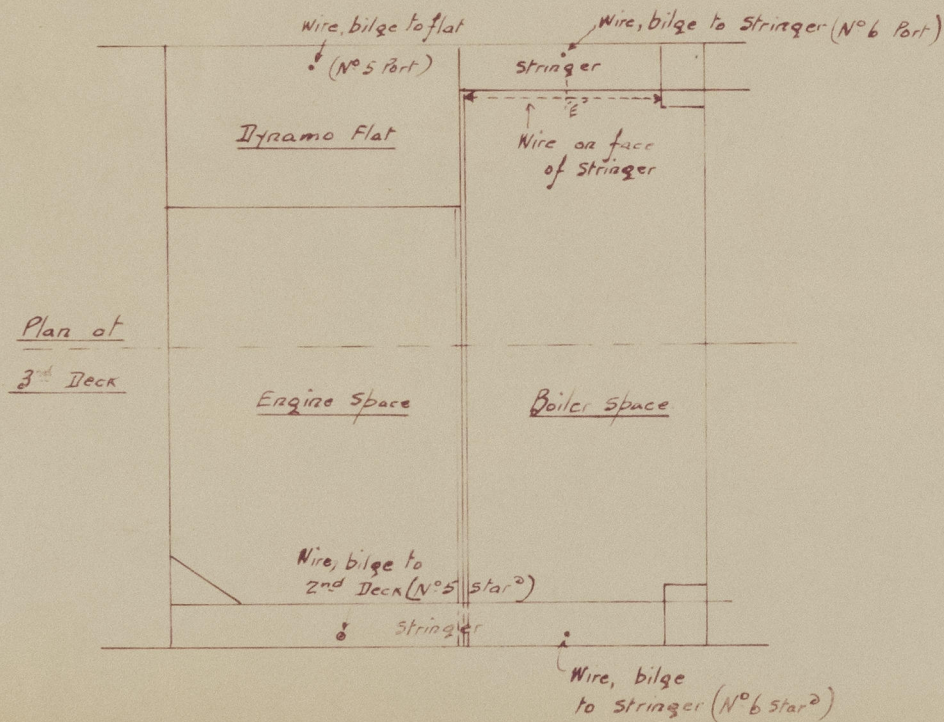 Wire, bilge to flat
(Nº 5 Port)
Wire, bilge to Stringer (Nº 6 Port)
Stringer
"E"
Wire on face
of Stringer
Dynamo Flat
Plan at
3rd Deck
Engine Space
Boiler Space
Wire, bilge to
2nd Deck (Nº 5 Starᵈ)
Stringer
Wire, bilge
to Stringer (Nº 6 Starᵈ)